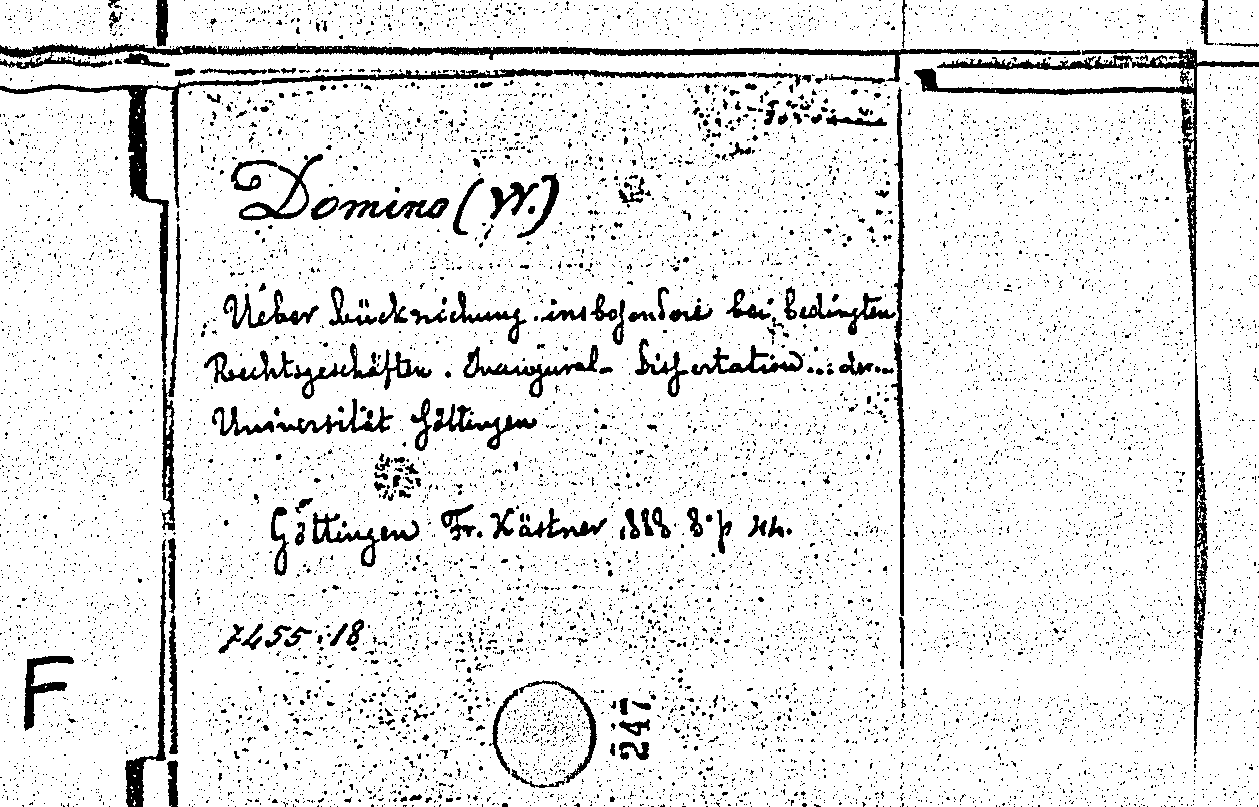 Domino (W.)
Ueber Rückziehung insbesondere bei bedingten
Rechtsgeschäften. Inaugural-Dissertation...der...
Universität Göttingen
Göttingen Fr. Kästner 1888 8° p
7455:18
F
247